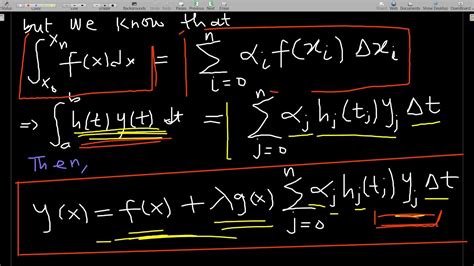 but we know that
∫_{x₀}^{xₙ} f(x)dx = ∑_{i=0}^{n} αᵢ f(xᵢ) Δxᵢ
⇒ ∫_a^b h(t) y(t) dt = ∑_{j=0}^{n} αⱼ hⱼ(tⱼ) yⱼ Δt
Then,
y(x) = f(x) + λg(x) ∑_{j=0}^{n} αⱼ hⱼ(tⱼ) yⱼ Δt